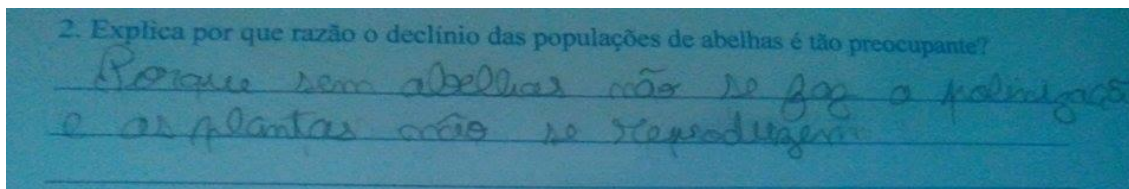 2. Explica por que razão o declínio das populações de abelhas é tão preocupante?
Porque sem abelhas não se faz a polinização
e as plantas não se reproduzem